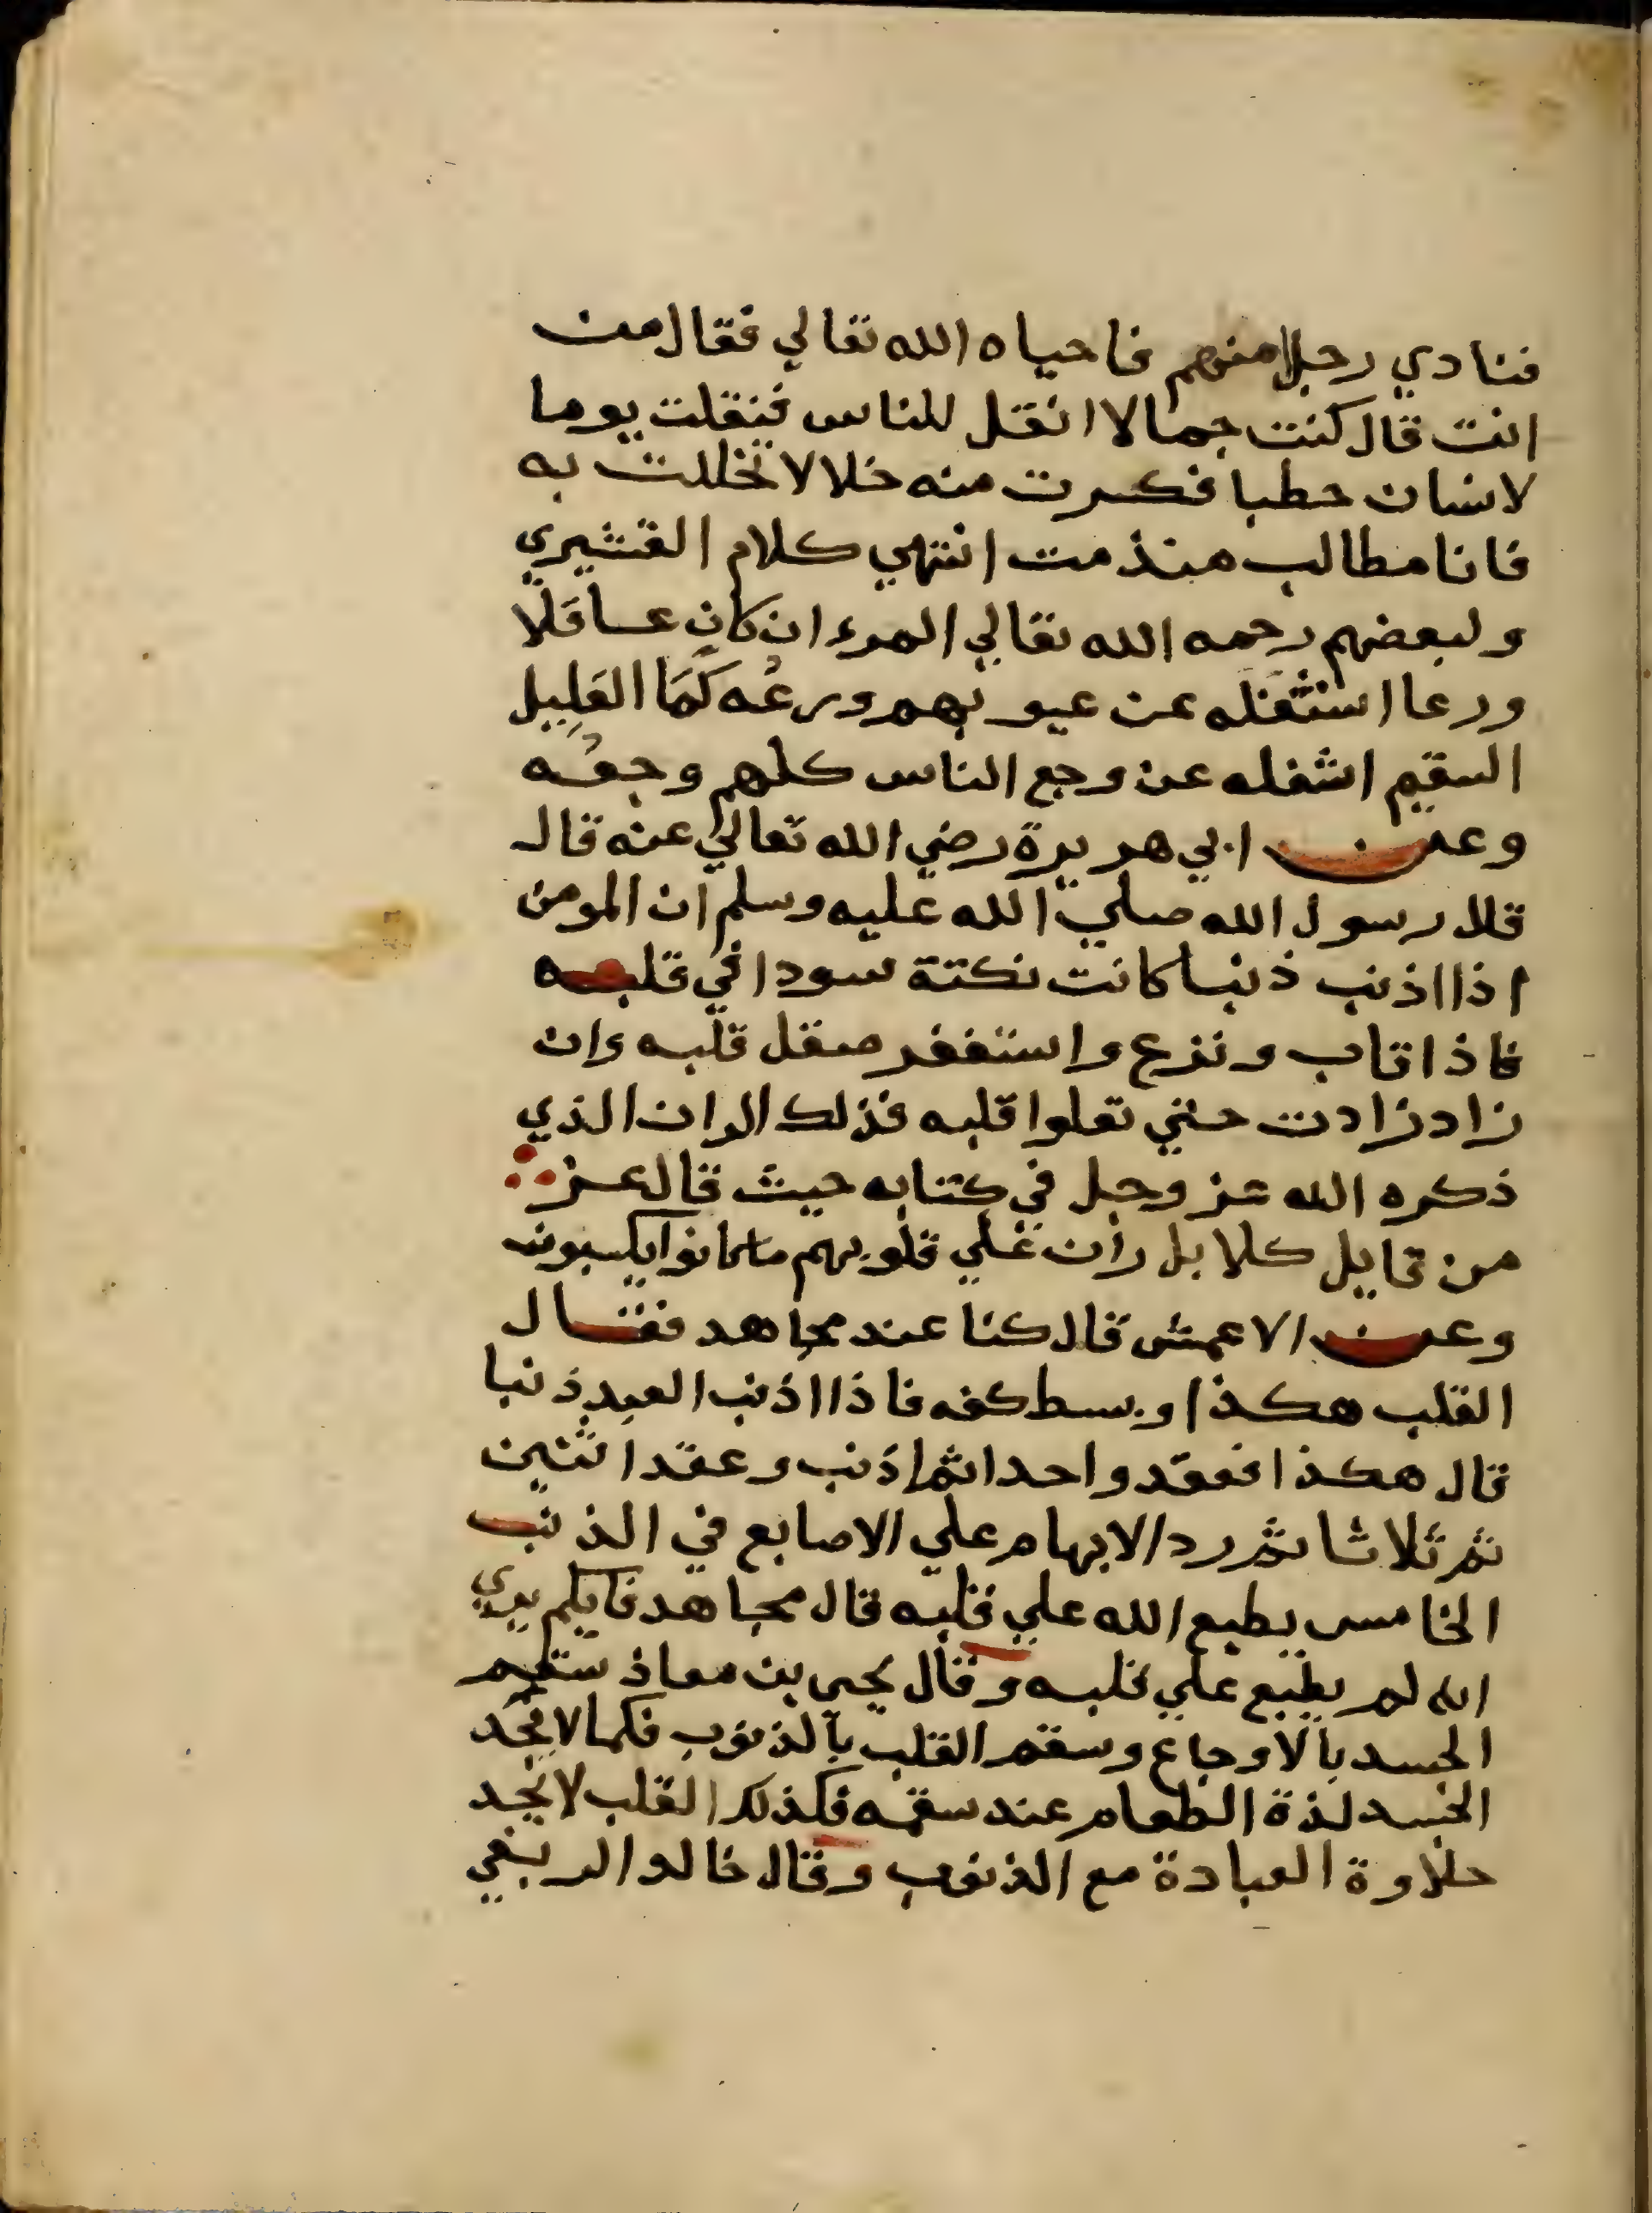 فنادي رجلا منهم فاحياه الله تعالي فقال من
انت قال كنت جمالا انقل للناس فنقلت يوما
لانسان حطبا فكسرت منه خلالا تخللت به
فانا مطالب منذ مت انتهي كلام القشيري
ولبعضهم رحمه الله تعالي المرء ان كان عاقلا
ورعا اشغله عن عيوبهم ورعه كما العليل
السقيم اشغله عن وجع الناس كلهم وجعه
وعن ابي هريرة رضي الله تعالي عنه قال
قال رسول الله صلي الله عليه وسلم ان المومن
اذا اذنب ذنبا كانت نكتة سودا في قلبه
فاذا تاب ونزع واستغفر صقل قلبه وان
زاد زادت حتي تعلوا قلبه فذلك الران الذي
ذكره الله عز وجل في كتابه حيث قال عز
من قايل كلا بل ران علي قلوبهم ما كانوا يكسبون
وعن الاعمش قال كنا عند مجاهد فقال
القلب هكذا وبسط كفه فاذا اذنب العبد ذنبا
قال هكذا فعقد واحدا ثم اذنب وعقد اثنين
ثم ثلاثا ثم رد الابهام علي الاصابع في الذنب
الخامس يطبع الله علي قلبه قال مجاهد فايكم يري
انه لم يطبع علي قلبه وقال يحيي بن معاذ سقم
الجسد بالاوجاع وسقم القلب بالذنوب فكما لا يجد
الجسد لذة الطعام عند سقمه فكذلك القلب لا يجد
حلاوة العبادة مع الذنوب وقال خالد الربعي